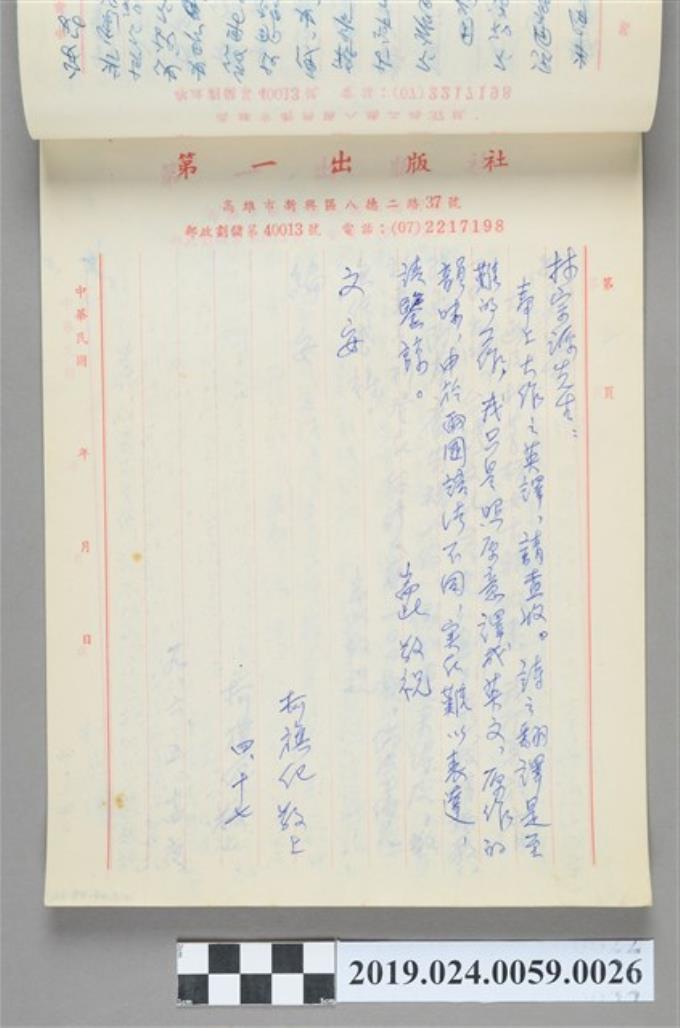 第一出版社
高雄市新興區八德二路37號
郵政劃儲第40013號 電話：(07)2217198
第 頁
林宗源先生：
奉上大作之英譯，請查收。詩之翻譯是至
難的工作，我只是照原意譯成英文，原作的
韻味，由於兩國語法不同，实在難以表達，
請鑒諒。
耑此 敬祝
文安
柯旗化 敬上
四、十七
中華民國 年 月 日
2019.024.0059.0026